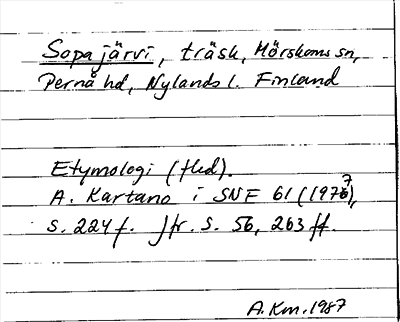 Sopajärvi, träsk, Mörskoms sn,
Pernå hd, Nylands l. Finland
Etymologi (fled).
A. Kartano i SNF 61 (1977),
s. 224 f. Jfr. s. 56, 263 ff.
A.Km. 1987